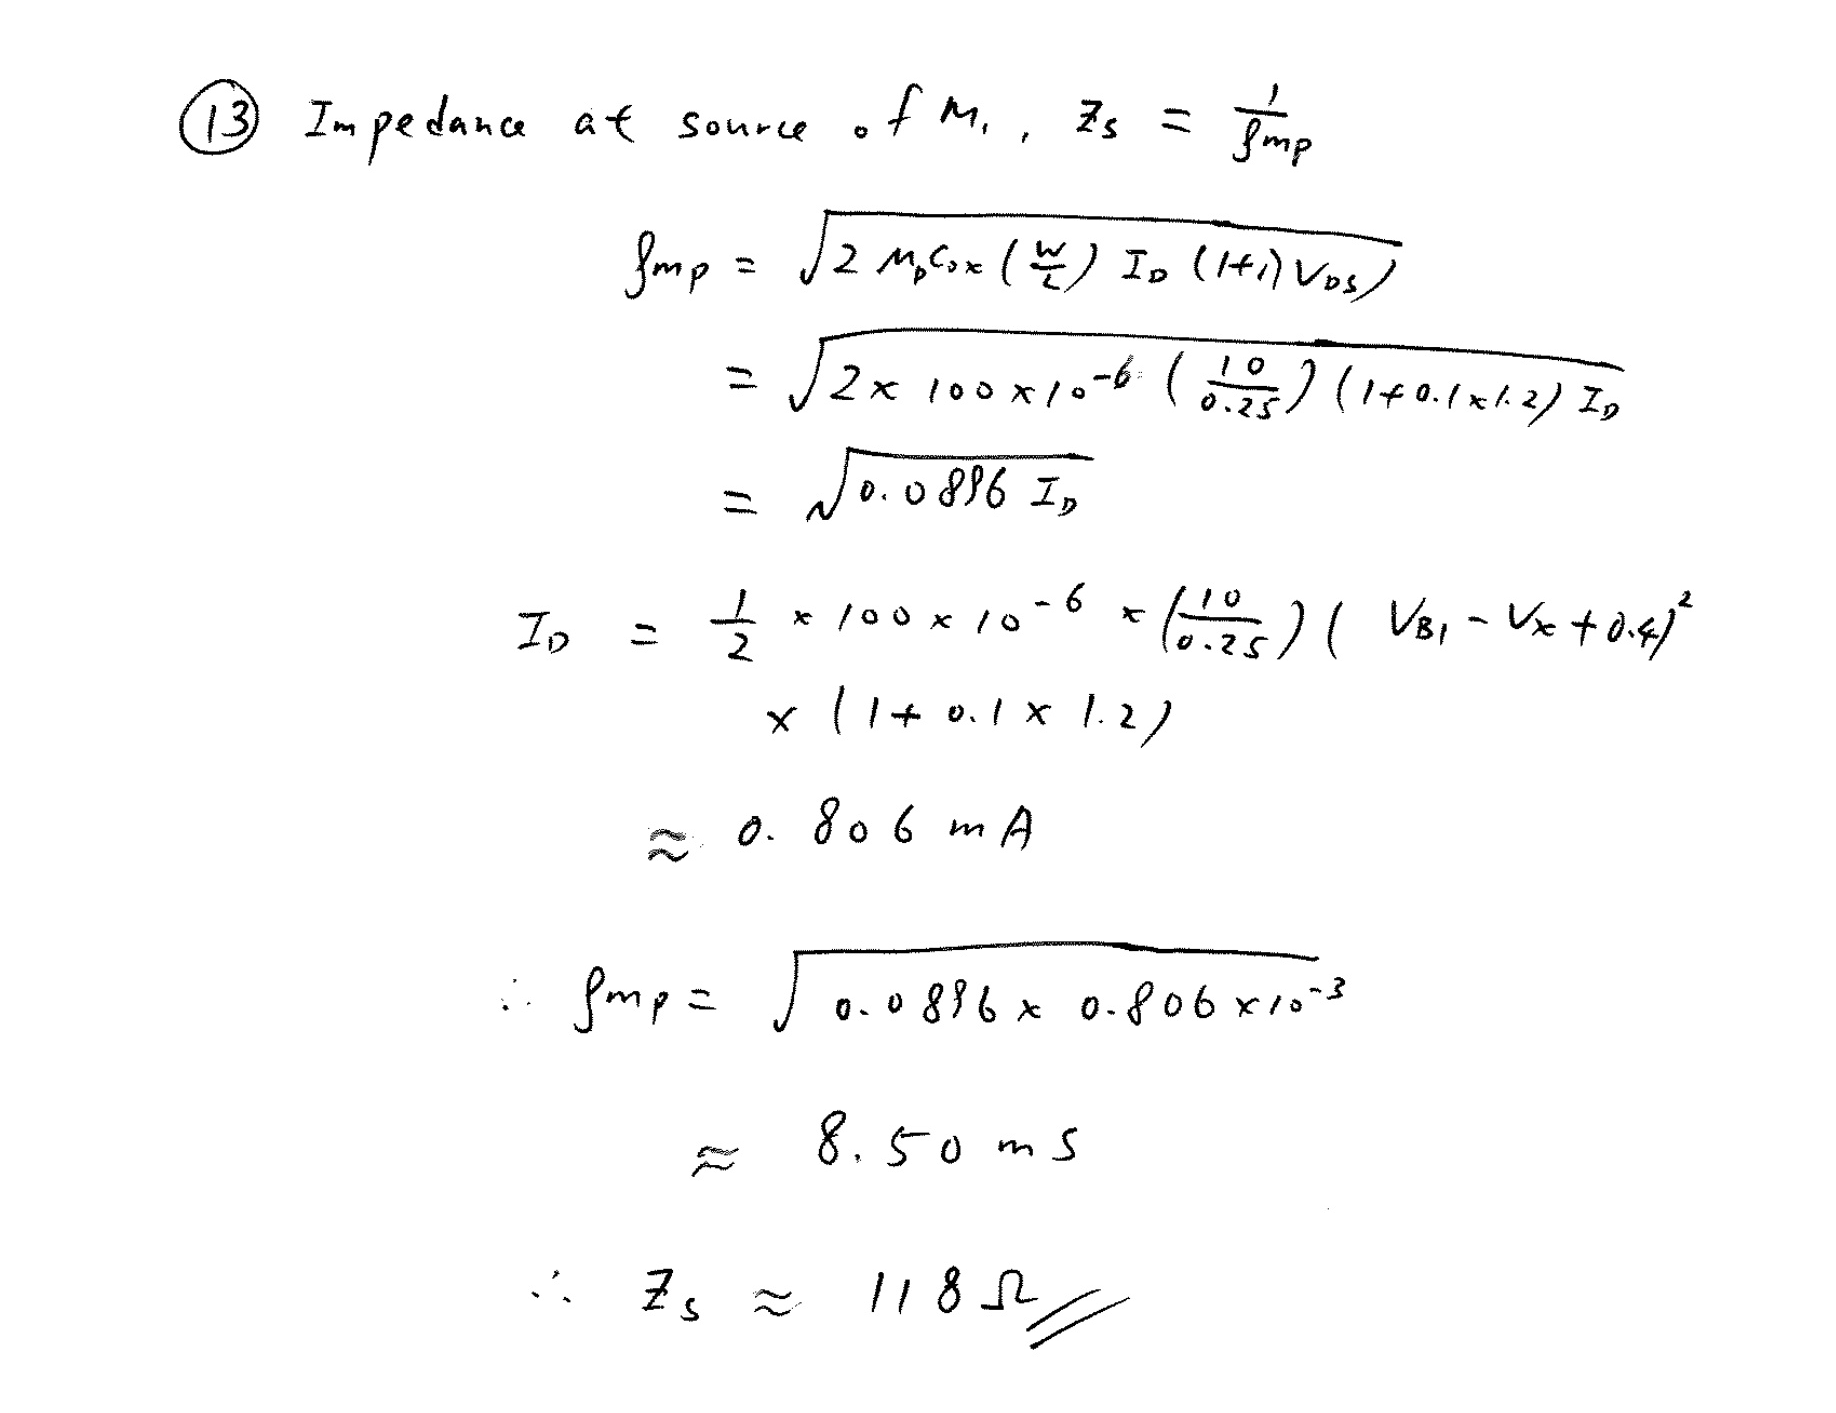 ⑬ Impedance at source of M₁, Zs = 1/gmp
gmp = √(2 μpCox (W/L) ID (1+λVDS))
= √(2 × 100 × 10⁻⁶ (10/0.25) (1+0.1×1.2) ID)
= √(0.0896 ID)
ID = 1/2 × 100 × 10⁻⁶ × (10/0.25) (VB1 - Vx + 0.4)²
× (1 + 0.1 × 1.2)
≈ 0.806 mA
∴ gmp = √(0.0896 × 0.806 × 10⁻³)
≈ 8.50 mS
∴ Zs ≈ 118 Ω